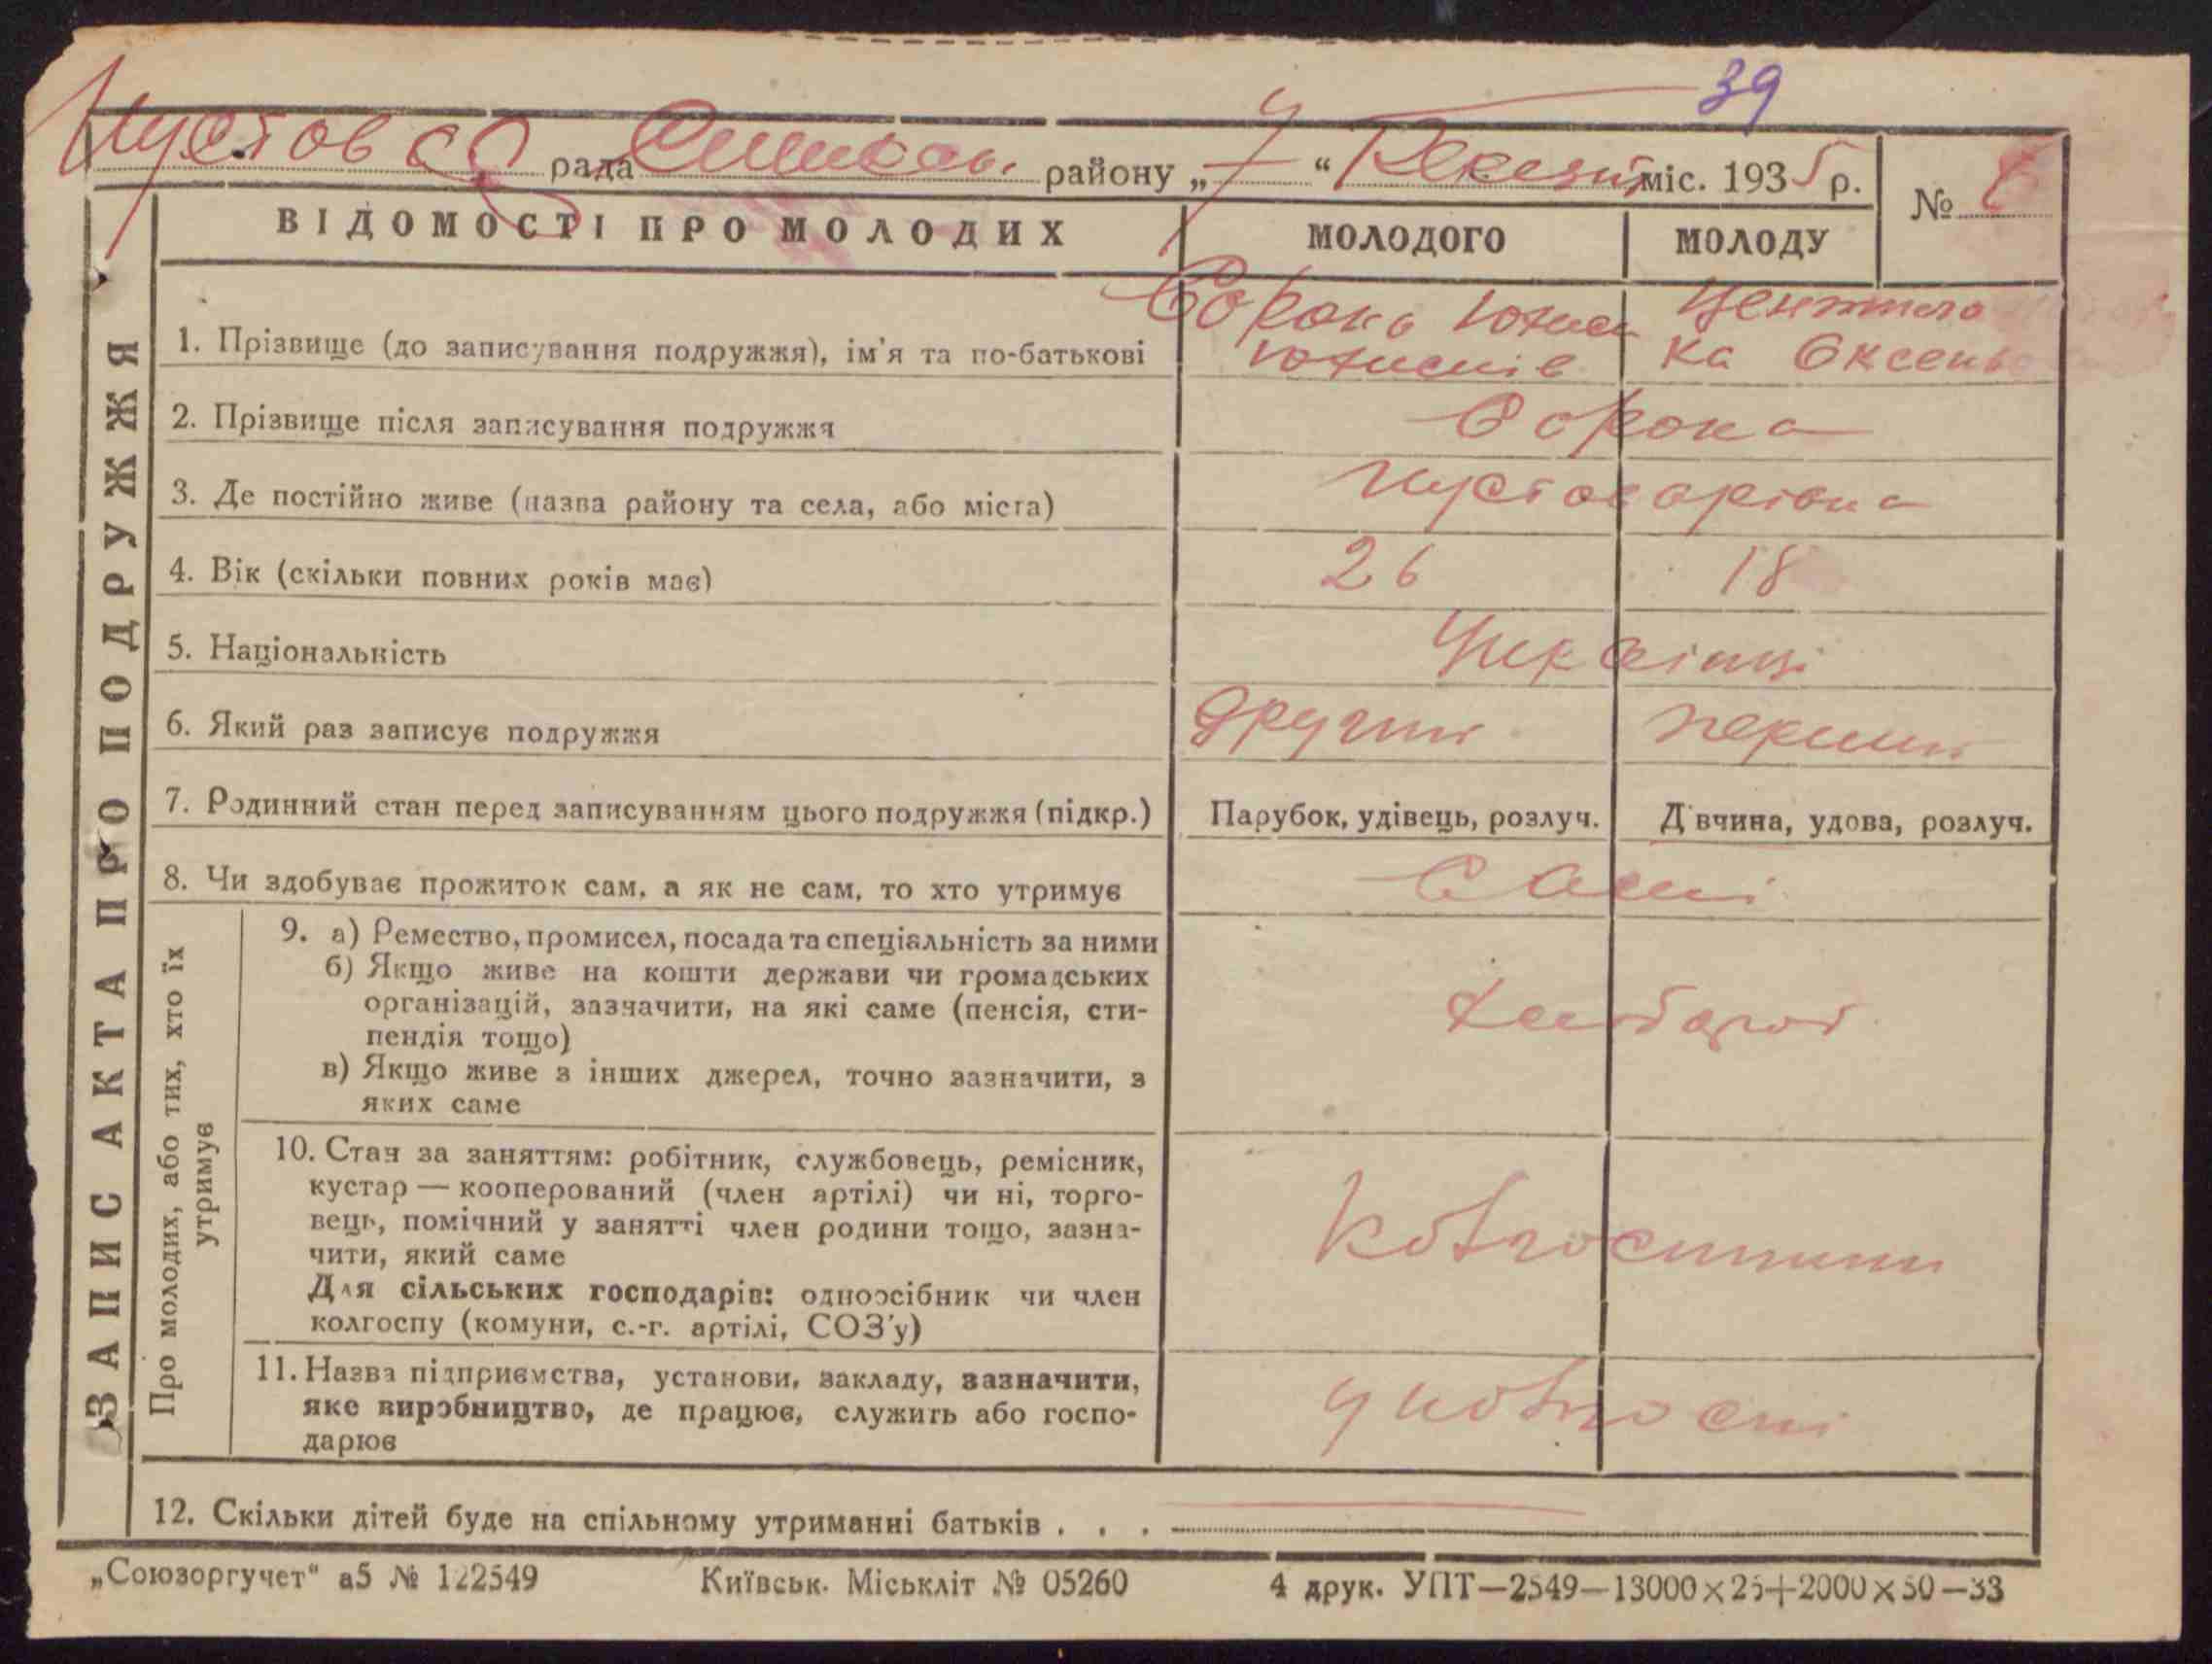 39
рада району „ 7 “ міс. 1935 р. № 6
ВІДОМОСТІ ПРО МОЛОДИХ МОЛОДОГО МОЛОДУ
ЗАПИС АКТА ПРО ПОДРУЖЖЯ
1. Прізвище (до записування подружжя), ім'я та по-батькові Сорока
2. Прізвище після записування подружжя Сорока
3. Де постійно живе (назва району та села, або міста) Пустоварівка
4. Вік (скільки повних років має) 26 18
5. Національність Українці
6. Який раз записує подружжя другий перший
7. Родинний стан перед записуванням цього подружжя (підкр.) Парубок, удівець, розлуч. Дівчина, удова, розлуч.
8. Чи здобуває прожиток сам, а як не сам, то хто утримує Самі
Про молодих, або тих, хто їх
утримує
9. а) Ремество, промисел, посада та спеціальність за ними
б) Якщо живе на кошти держави чи громадських
організацій, зазначити, на які саме (пенсія, сти-
пендія тощо)
в) Якщо живе з інших джерел, точно зазначити, з
яких саме
10. Стан за заняттям: робітник, службовець, ремісник,
кустар — кооперований (член артілі) чи ні, торго-
вець, помічний у занятті член родини тощо, зазна-
чити, який саме
Для сільських господарів: одноосібник чи член
колгоспу (комуни, с.-г. артілі, СОЗ'у)
11. Назва підприємства, установи, закладу, зазначити,
яке виробництво, де працює, служить або госпо-
дарює
у колгоспі
12. Скільки дітей буде на спільному утриманні батьків . . .
„Союзоргучет“ а5 № 122549 Київськ. Міськліт № 05260 4 друк. УПТ—2549—13000×25+2000×50—33